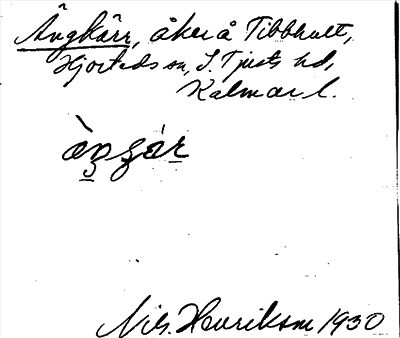 Ängkärr, åker å Tibbhult,
Hjorteds sn, S. Tjusts hd,
Kalmar l.
Nils Henriksson 1930